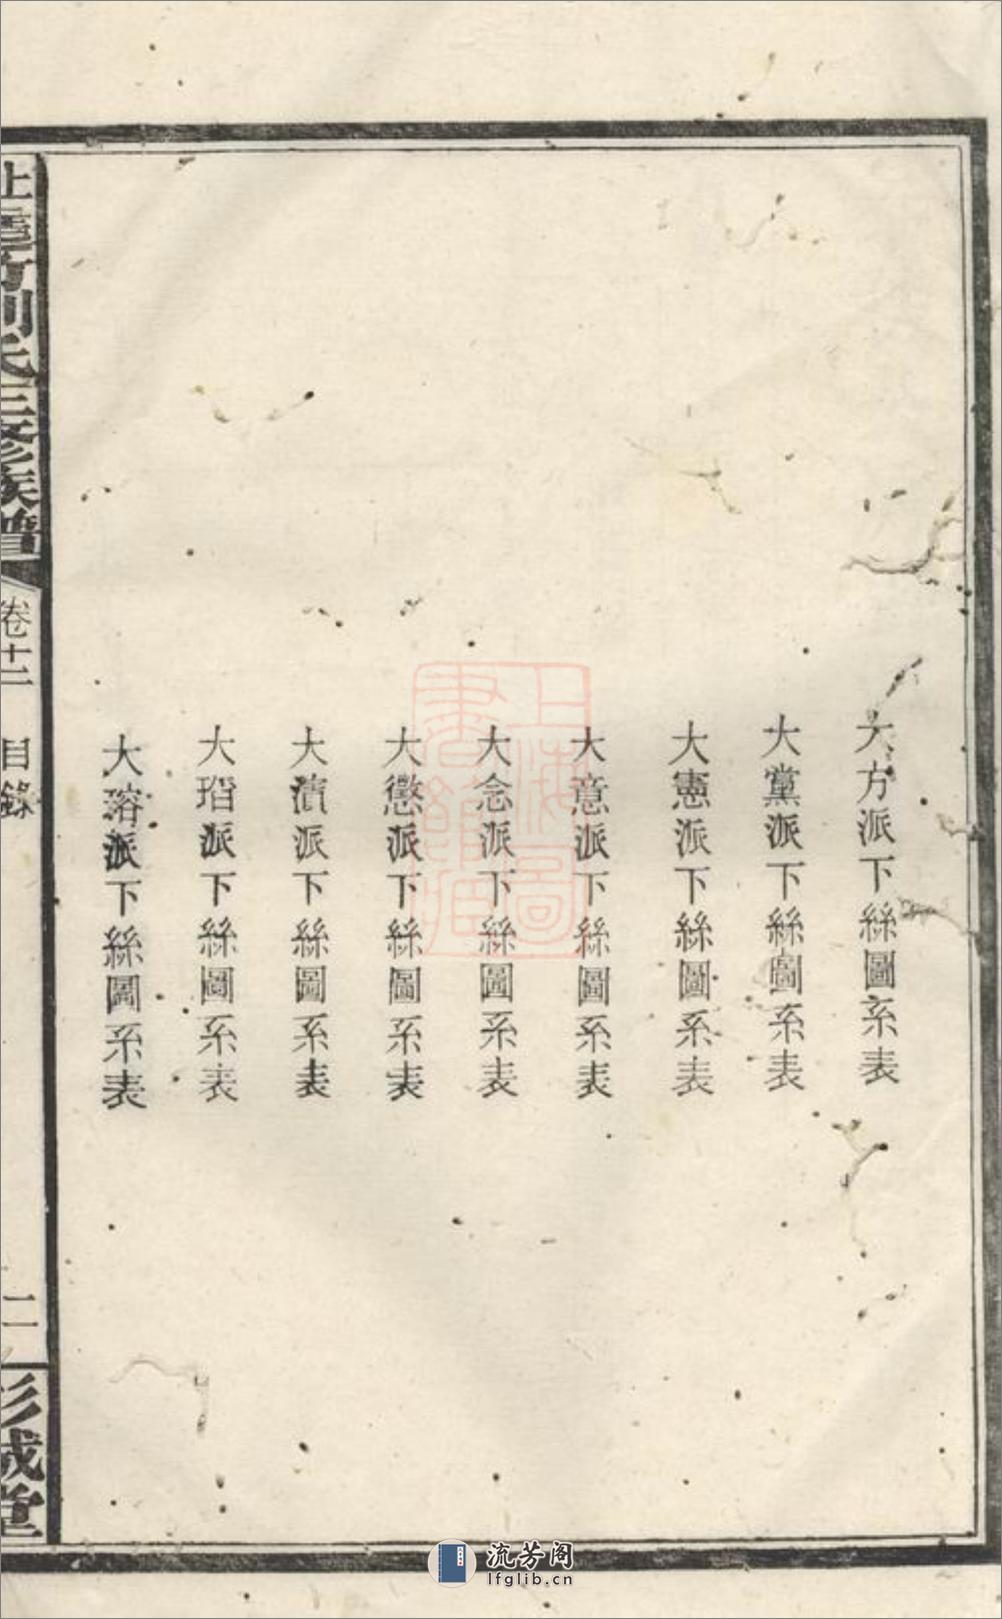 大方派下絲圖系表
大黨派下絲圖系表
大憲派下絲圖系表
大意派下絲圖系表
大念派下絲圖系表
大懲派下絲圖系表
大濆派下絲圖系表
大瑎派下絲圖系表
大瑢派下絲圖系表
劉氏三修族譜
卷十二
目錄
二
彭城堂
上海圖書館藏
流芳阁
lfglib.cn